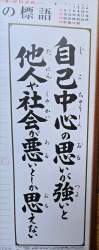 の標語
自己中心の思いが強いと
他人や社会が悪いとしか思えない